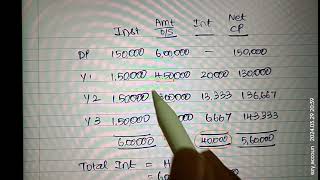 Inst Amt O/S Int Net CP
DP 150,000 6,00,000 — 150,000
Y1 1,50,000 4,50,000 20,000 130,000
Y2 1,50,000 13,333 136,667
Y3 1,50,000 6,667 143,333
6,00,000 40,000 5,60,000
Total Int =
=
easy_accoun : 2024.05.29 20:59